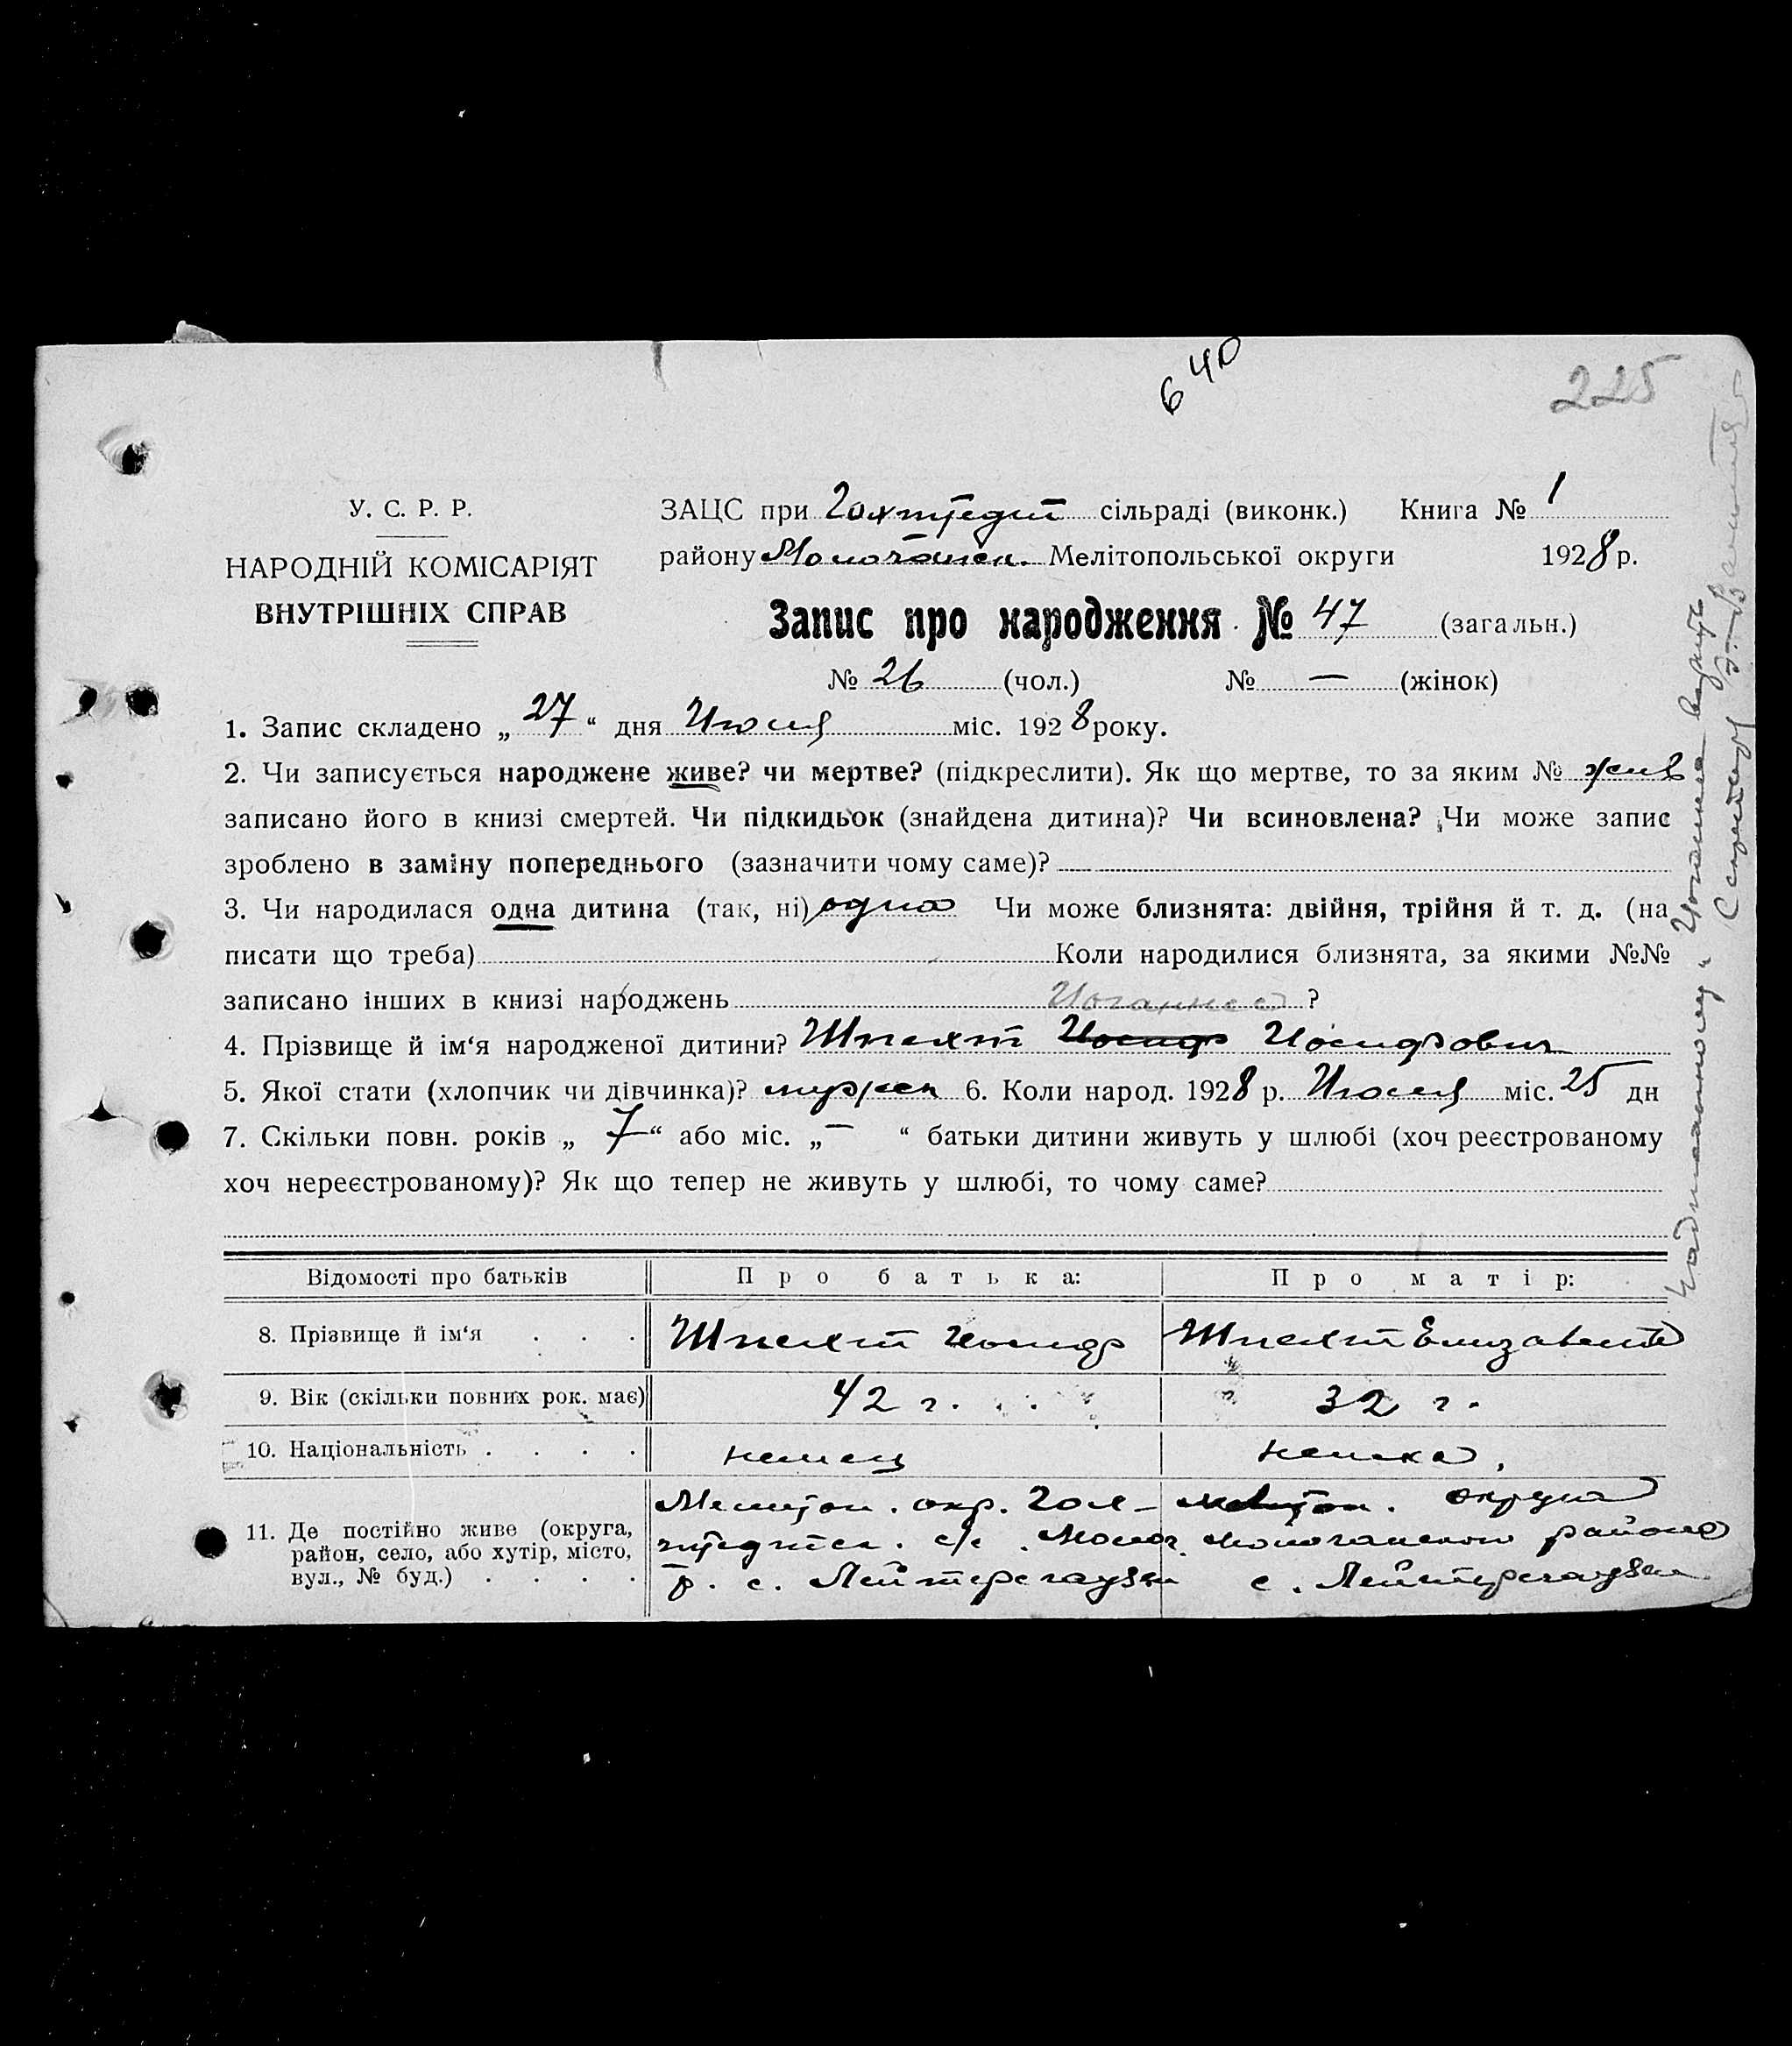 640
225
У. С. Р. Р.
НАРОДНІЙ КОМІСАРІЯТ
ВНУТРІШНІХ СПРАВ
ЗАЦС при Гохштедт сільраді (виконк.) Книга № 1
району Молочанск. Мелітопольської округи 1928 р.
Запис про народження № 47 (загальн.)
№ 26 (чол.) № — (жінок)
1. Запис складено „ 27 “ дня Июля міс. 1928 року.
2. Чи записується народжене живе? чи мертве? (підкреслити). Як що мертве, то за яким № жив
записано його в книзі смертей. Чи підкидьок (знайдена дитина)? Чи всиновлена? Чи може запис
зроблено в заміну попереднього (зазначити чому саме)?
3. Чи народилася одна дитина (так, ні) одна Чи може близнята: двійня, трійня й т. д. (на
писати що треба) Коли народилися близнята, за якими №№
записано інших в книзі народжень ?
Иоганнес
4. Прізвище й ім‘я народженої дитини? Шпехт Иосиф Иосифович
5. Якої стати (хлопчик чи дівчинка)? мужск 6. Коли народ. 1928 р. Июля міс. 25 дн
7. Скільки повн. років „ 7 “ або міс. „ — “ батьки дитини живуть у шлюбі (хоч реєстрованому
хоч нереєстрованому)? Як що тепер не живуть у шлюбі, то чому саме?
Відомості про батьків Про батька: Про матір:
8. Прізвище й ім‘я . . . Шпехт Иосиф Шпехт Елизавета
9. Вік (скільки повних рок. має) 42 г. 32 г.
10. Національність . . . . немец немка,
11. Де постійно живе (округа, район, село, або хутір, місто, вул., № буд.) . . . .
Мелитоп. окр. Гох-
штедтск. с/с. Молоч.
р. с. Лейтерсгаузен
Мелитоп. округа
Молочанского района
с. Лейтерсгаузен